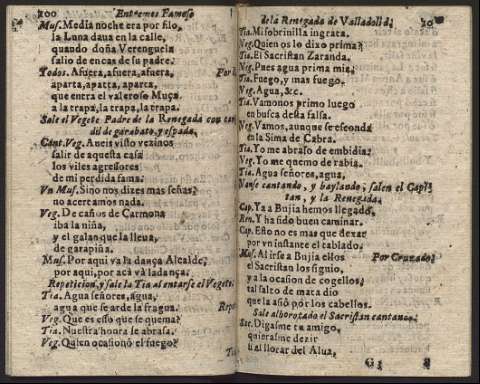 200 Entremes Famoso
Mus. Media noche era por filo,
la Luna daua en la calle,
quando doña Verenguela
salio de en cas de su padre.
Todos. Afuera, afuera, afuera,
aparta, aparta, aparta,
que entra el valeroso Muça
a la trapa, la trapa, la trapa.
Sale el Vegete Padre de la Renegada con can
dil de garabato, y espada.
Cant. Veg. Aueis visto vezinos
salir de aquesta casa
los viles agressores
de mi perdida fama.
Vn Mus. Sino nos dizes mas señas,
no acertamos nada.
Veg. De caños de Carmona
iba la niña,
y el galan que la lleua,
de garapiña.
Mus. Por aqui va la dança Alcalde,
por aqui, por acà và la dança.
Repeticion, y sale la Tia al entarse el Vegete.
Tia. Agua señores, agua,
agua que se arde la fragua.
Veg. Que es esso que se quema?
Tia. Nuestra honra se abrasa.
Veg. Quien ocasionò el fuego?
Tia
de la Renegada de Valladolid.
Tia. Mi sobrinilla ingrata.
Veg. Quien os lo dixo prima?
Tia. El Sacristan Zaranda.
Veg. Pues agua prima mia,
Tia. Fuego, y mas fuego.
Veg. Agua, &c.
Tia. Vamonos primo luego
en busca desta falsa.
Veg. Vamos, aunque se esconda
en la Sima de Cabra.
Tia. Yo me abraso de embidia.
Veg. Yo me quemo de rabia.
Tia. Agua señores, agua,
Vanse cantando, y baylando, salen el Capi-
tan, y la Renegada.
Cap. Ya a Bujia hemos llegado,
Ren. Y ha sido buen caminar.
Cap. Esto no es mas que dexar
por vn instante el tablado.
Mus. Al irse a Bujia ellos Por Cruzado
el Sacristan los siguio,
y a la ocasion de cogellos
tal salto de mata dio
que la asiò por los cabellos.
Sale alborotado el Sacristan cantando.
Sac. Digasme tu amigo,
quierasme dezir
G3